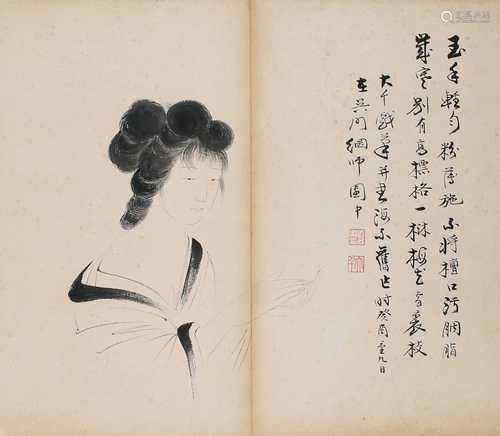 玉手輕勻粉薄施 不將檀口污胭脂
歲寒別有高標格 一樹梅花枝
大千戲筆并書舊作 時癸酉重九日
在吳門網師園中